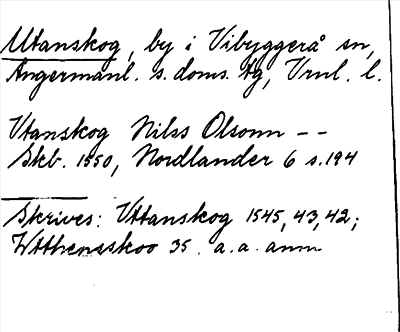 Utanskog, by i Vibyggerå sn,
Ångermanl. s. doms. tg, Vrnl. l.
Vtanskog Nilss Olsonn – –
Skb. 1550, Nordlander 6 s. 194
Skrives: Vttanskog 1545, 43, 42;
Wtthensskoo 35. a. a. anm